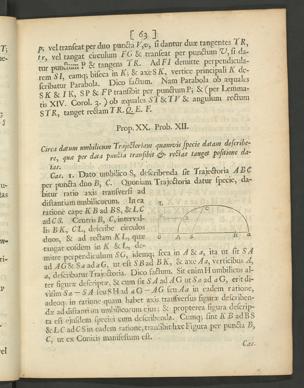 [ 63 ]
p, vel transeat per duo puncta V,v, si dantur duæ tangentes TR,
tr, vel tangat circulum FG & transeat per punctum V, si da-
tur punctum P & tangens TR. Ad FI demitte perpendicula-
rem SI, eamq; biseca in K; & axe SK, vertice principali K de-
scribatur Parabola. Dico factum. Nam Parabola ob æquales
SK & IK, SP & FP transibit per punctum P; & (per Lemma-
tis XIV. Corol. 3.) ob æquales ST & TV & angulum rectum
STR, tanget rectam TR. Q. E. F.
Prop. XX. Prob. XII.
Circa datum umbilicum Trajectoriam quamvis specie datam describe-
re, quæ per data puncta transibit & rectas tanget positione da-
tas.
Cas. 1. Dato umbilico S, describenda sit Trajectoria ABC
per puncta duo B, C. Quoniam Trajectoria datur specie, da-
bitur ratio axis transversi ad
distantiam umbilicorum. In ea
ratione cape KB ad BS, & LC
ad CS. Centris B, C, interval-
lis BK, CL, describe circulos
duos, & ad rectam KL, quæ
tangat eosdem in K & L, de-
mitte perpendiculum SG, idemq; seca in A & a, ita ut sit SA
ad AG & Sa ad aG, ut est SB ad BK, & axe Aa, verticibus A,
a, describatur Trajectoria. Dico factum. Sit enim H umbilicus al-
ter figuræ descriptæ, & cum sit SA ad AG ut Sa ad aG, erit di-
visim Sa - SA seu SH ad aG - AG seu Aa in eadem ratione,
adeoq; in ratione quam habet axis transversus figuræ describen-
dæ ad distantiam umbilicorum ejus; & propterea figura descrip-
ta est ejusdem speciei cum describenda. Cumq; sint KB ad BS
& LC ad CS in eadem ratione, transibit hæc Figura per puncta B,
C, ut ex Conicis manifestum est.
Cas.